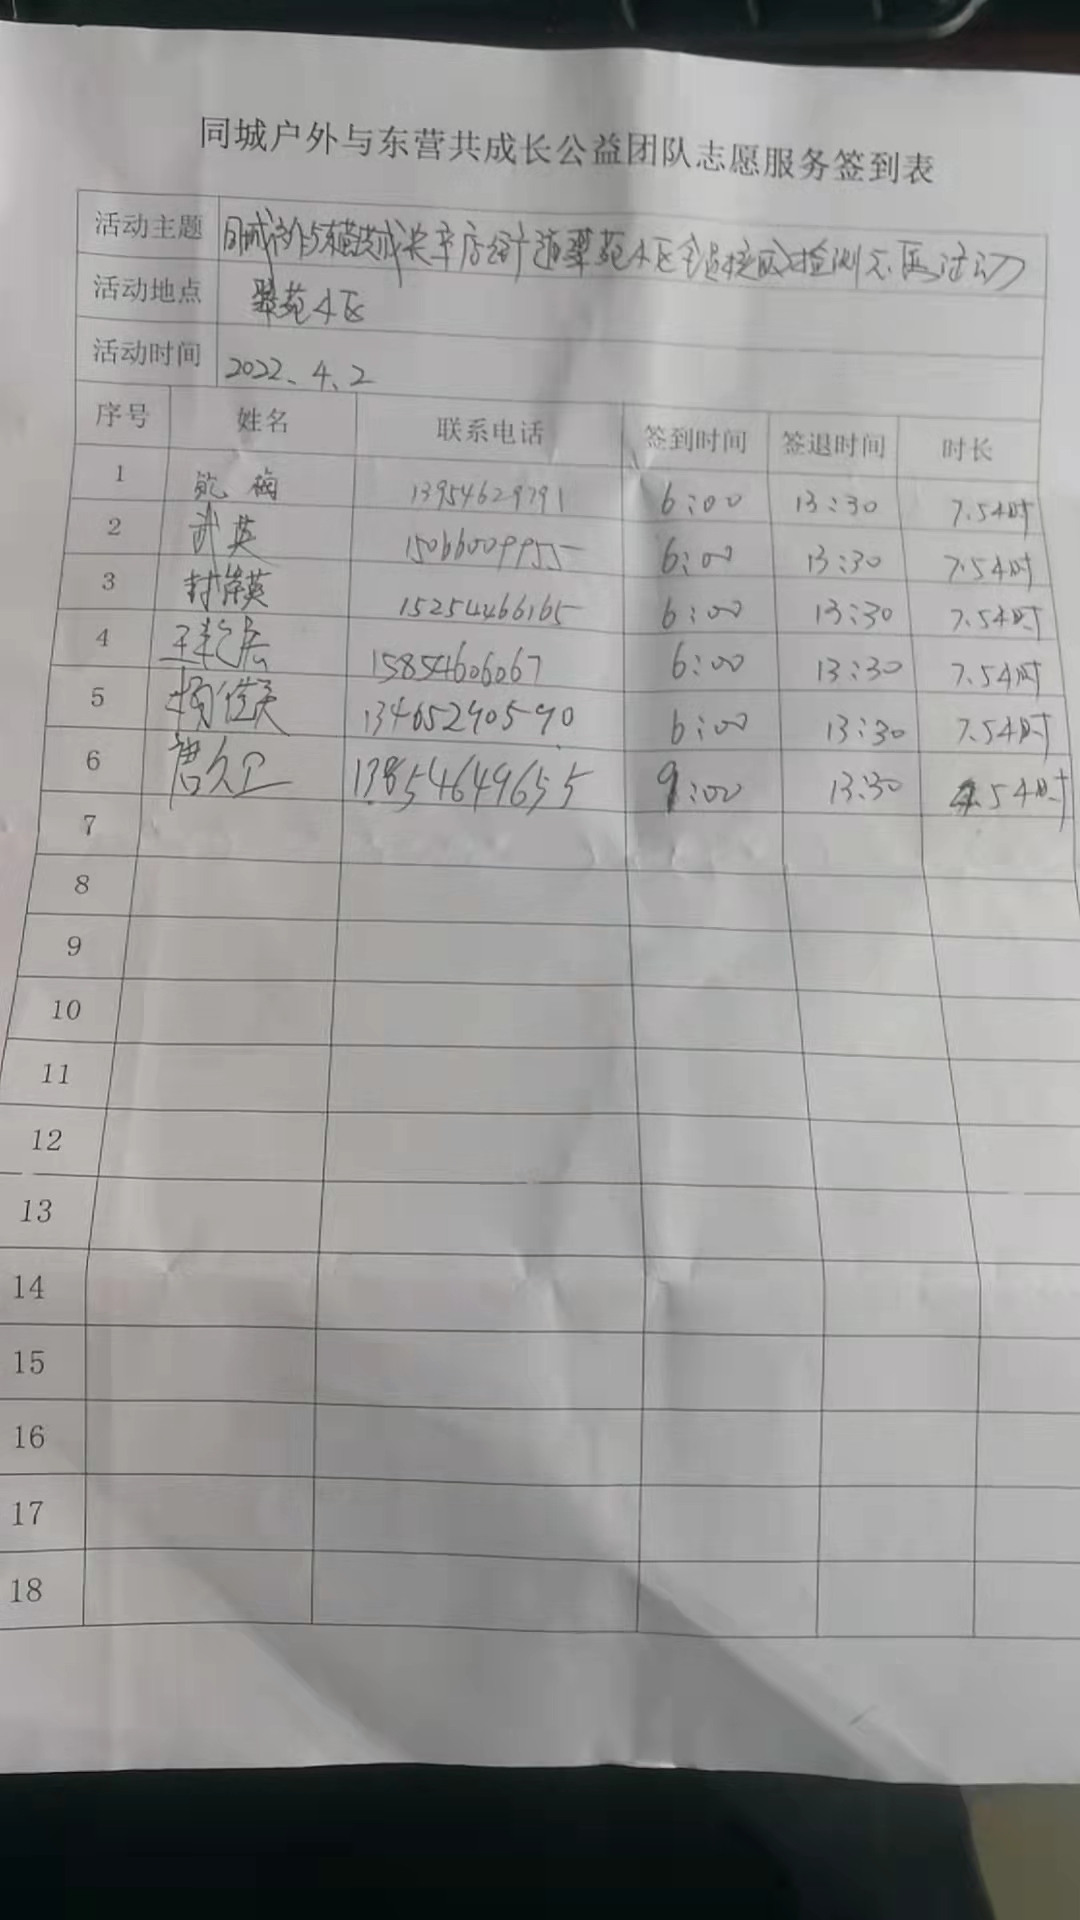 同城户外与东营共成长公益团队志愿服务签到表
活动主题 同城户外与东营共成长 翠苑小区全员核酸检测志愿活动
活动地点 翠苑小区
活动时间 2022.4.2
序号 姓名 联系电话 签到时间 签退时间 时长
1 鲍梅 13954629791 6:00 13:30 7.5小时
2 武英 15066009955 6:00 13:30 7.5小时
3 封 英 15254466165 6:00 13:30 7.5小时
4 王 15854606067 6:00 13:30 7.5小时
5 杨 13465290590 6:00 13:30 7.5小时
6 唐久卫 13854649655 9:00 13:30 4.5小时
7
8
9
10
11
12
13
14
15
16
17
18